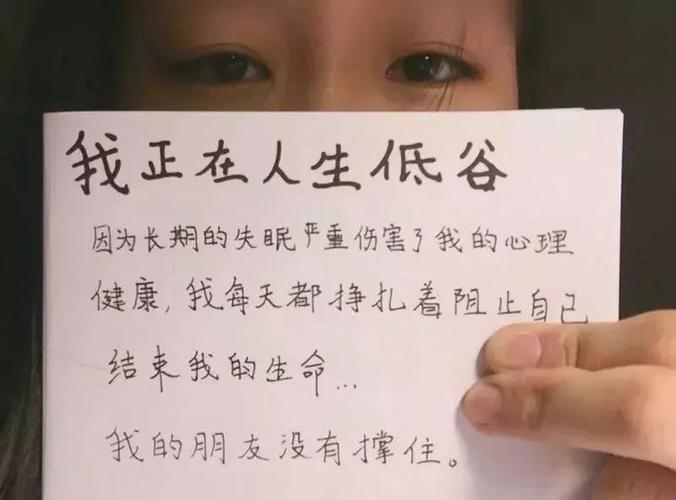 我正在人生低谷
因为长期的失眠严重伤害了我的心理
健康,我每天都挣扎着阻止自己
结束我的生命...
我的朋友没有撑住。